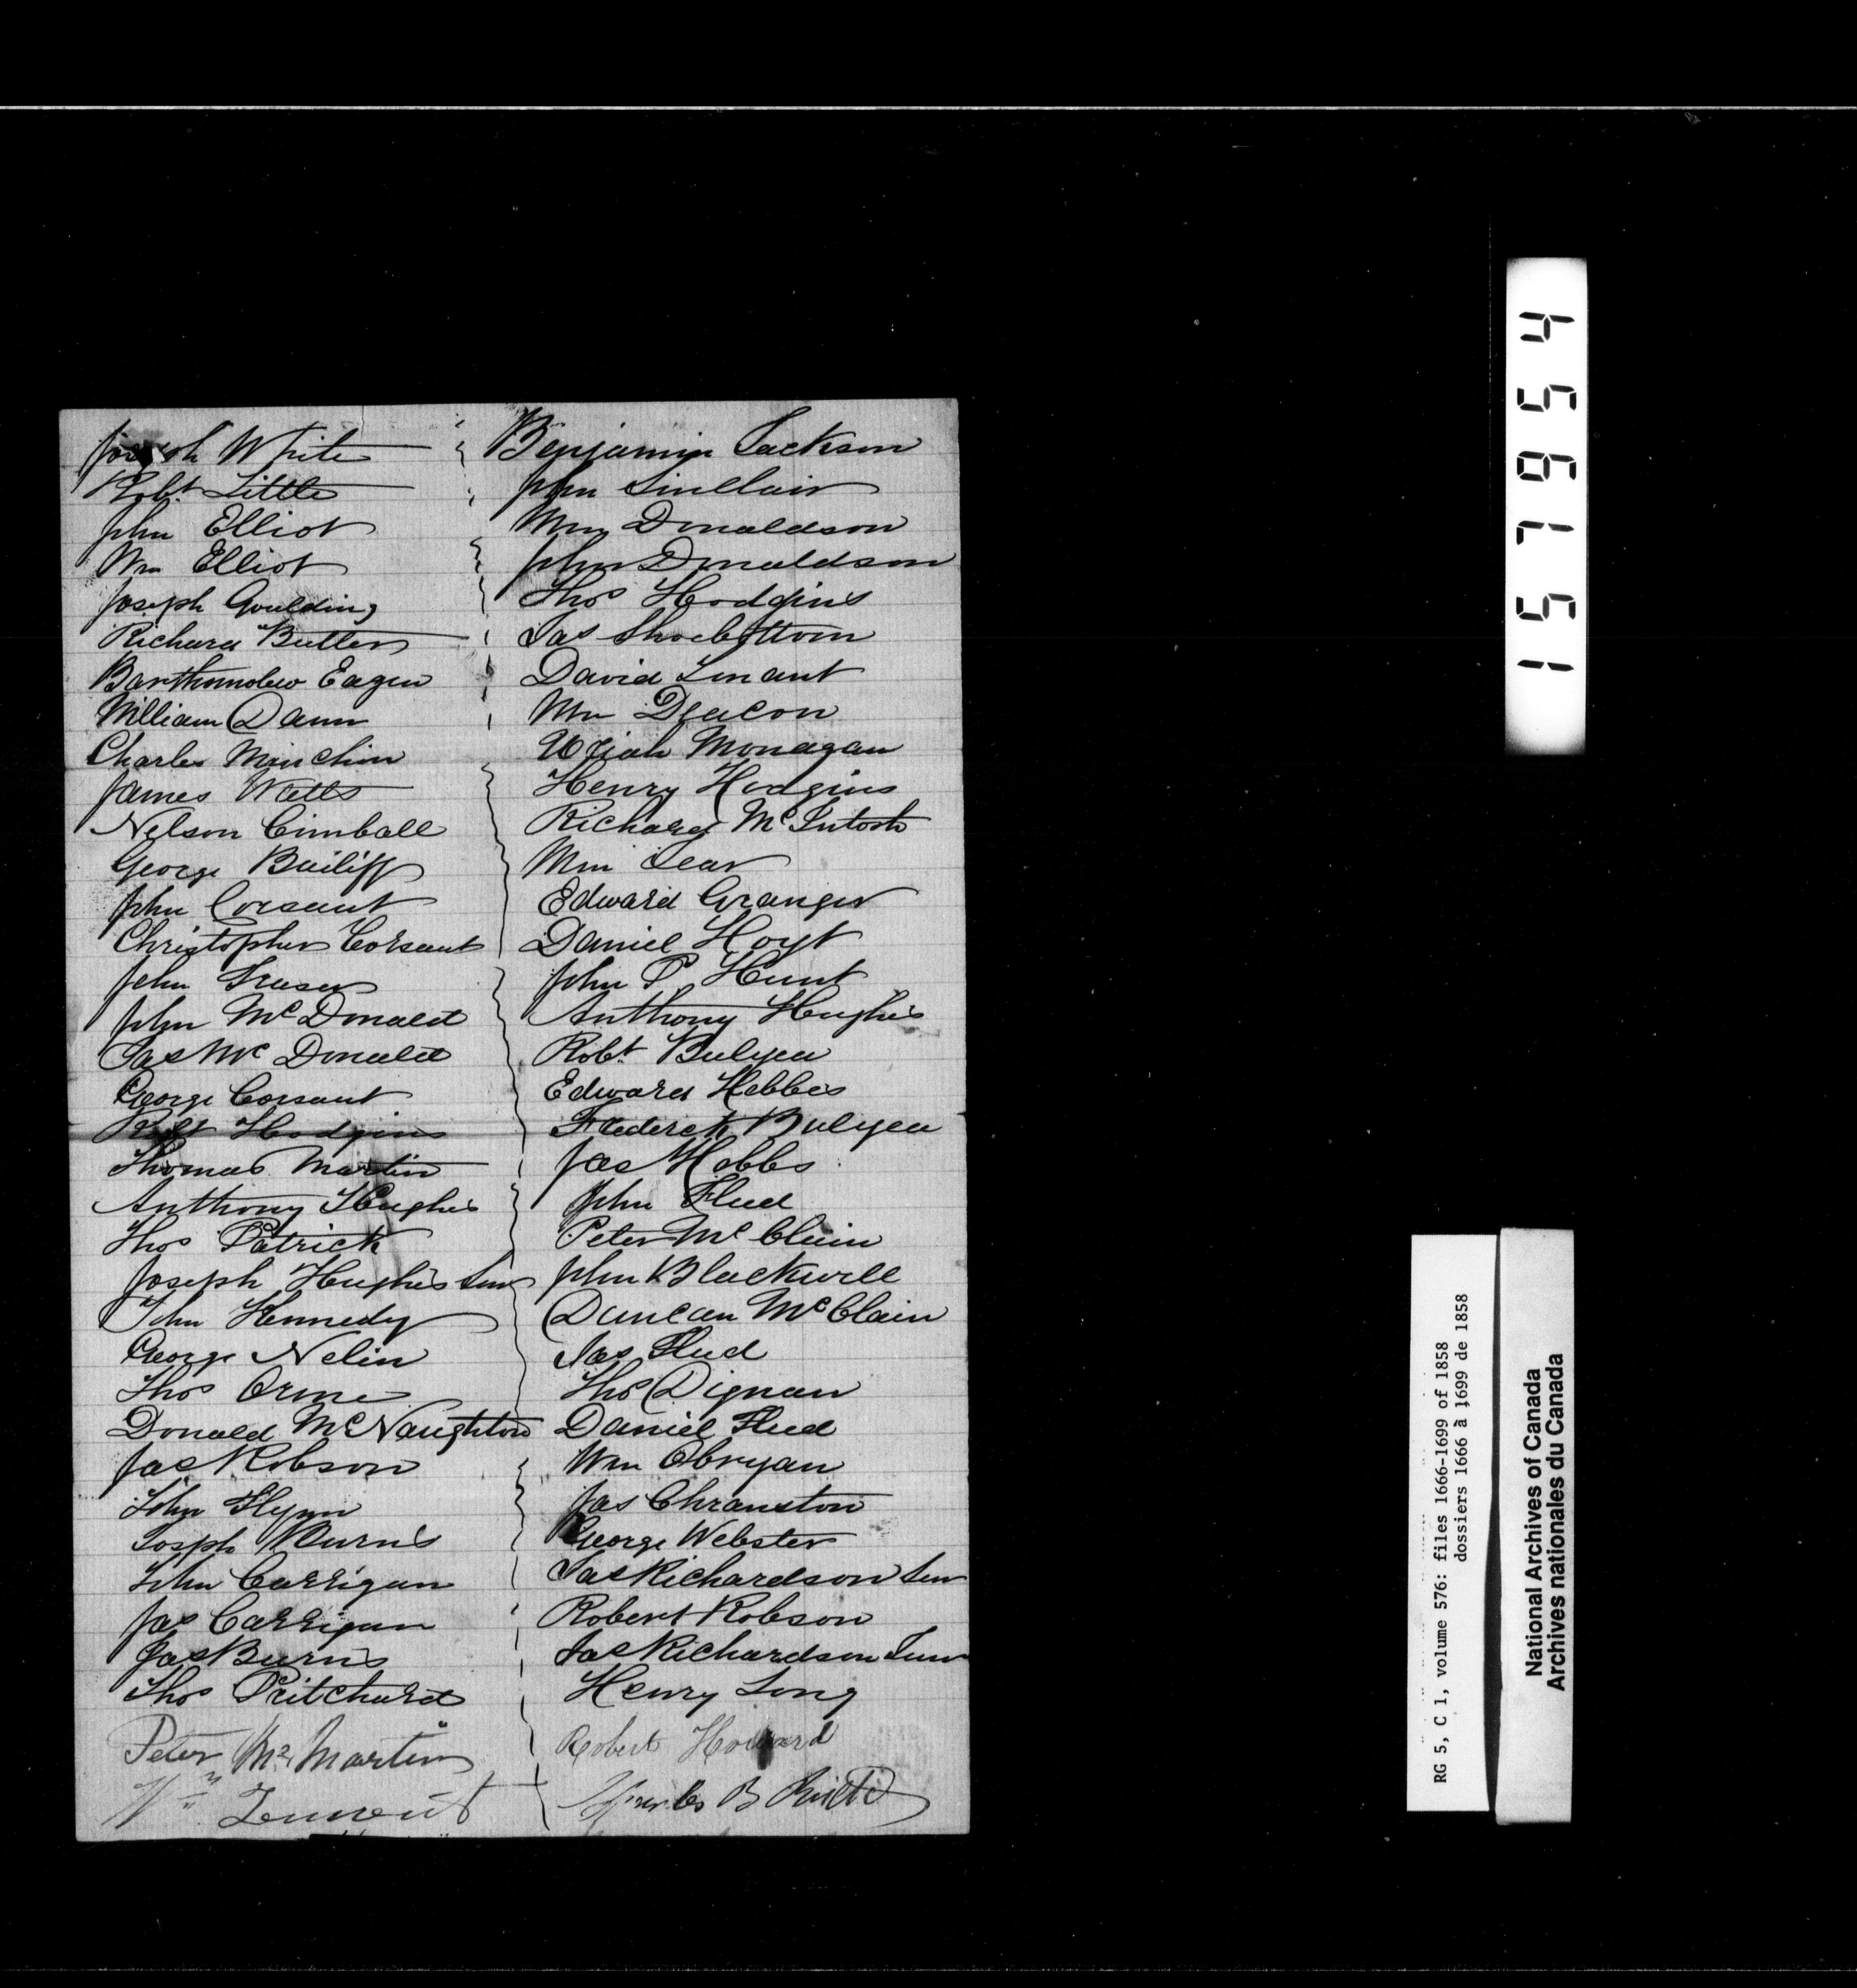 Joseph White
Robt. Little
John Elliot
Wm Elliot
Joseph Goulding
Richard Butler
Barthomolew Eagen
William Dann
Charles Minchin
James Watts
Nelson Cimball
George Bailiff
John Corsaut
Christopher Corsaut
John Fraser
John McDonald
Jas McDonald
George Corsaut
Robt Hodgins
Thomas Martin
Anthony Hughes
Thos Patrick
Joseph Hughes Sen
John Kennedy
George Nelin
Thos Orme
Donald McNaughton
Jas Robson
John Flynn
Joseph Burns
John Carrigan
Jas Carrigan
Jas Burns
Thos Pritchard
Peter McMartin
Wm Tennent
Benjamin Jackson
John Sinclair
Wm Donaldson
John Donaldson
Thos Hodgins
Jas Shoebottom
David
Wm Deacon
Uriah Monagan
Henry Hodgins
Richard McIntosh
Wm
Edward Granger
Daniel Hoyt
John P Hunt
Anthony Hughes
Robt. Bulyea
Edward Hobbes
Frederck Bulyea
Jas Hobbs
John Flud
Peter McClain
John Blackwell
Duncan McClain
Jas Flud
Thos Dignan
Daniel Flud
Wm Obryan
Jas Chranston
George Webster
Jas Richardson Sen
Robert Robson
Jas Richardson Jun
Henry Long
Robert Howard
Charles B
157954
RG 5, C 1, volume 576: files 1666-1699 of 1858
dossiers 1666 à 1699 de 1858
National Archives of Canada
Archives nationales du Canada